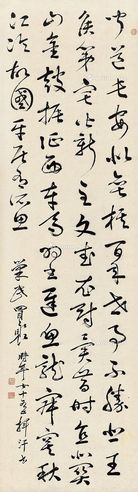 聞道長安似弈棋百年世事不勝悲王
侯第宅皆新主文武衣冠異昔時直北關
山金鼓振征西車馬羽書遲魚龍寂寞秋
江冷故國平居有所思
時年七十 揮汗書